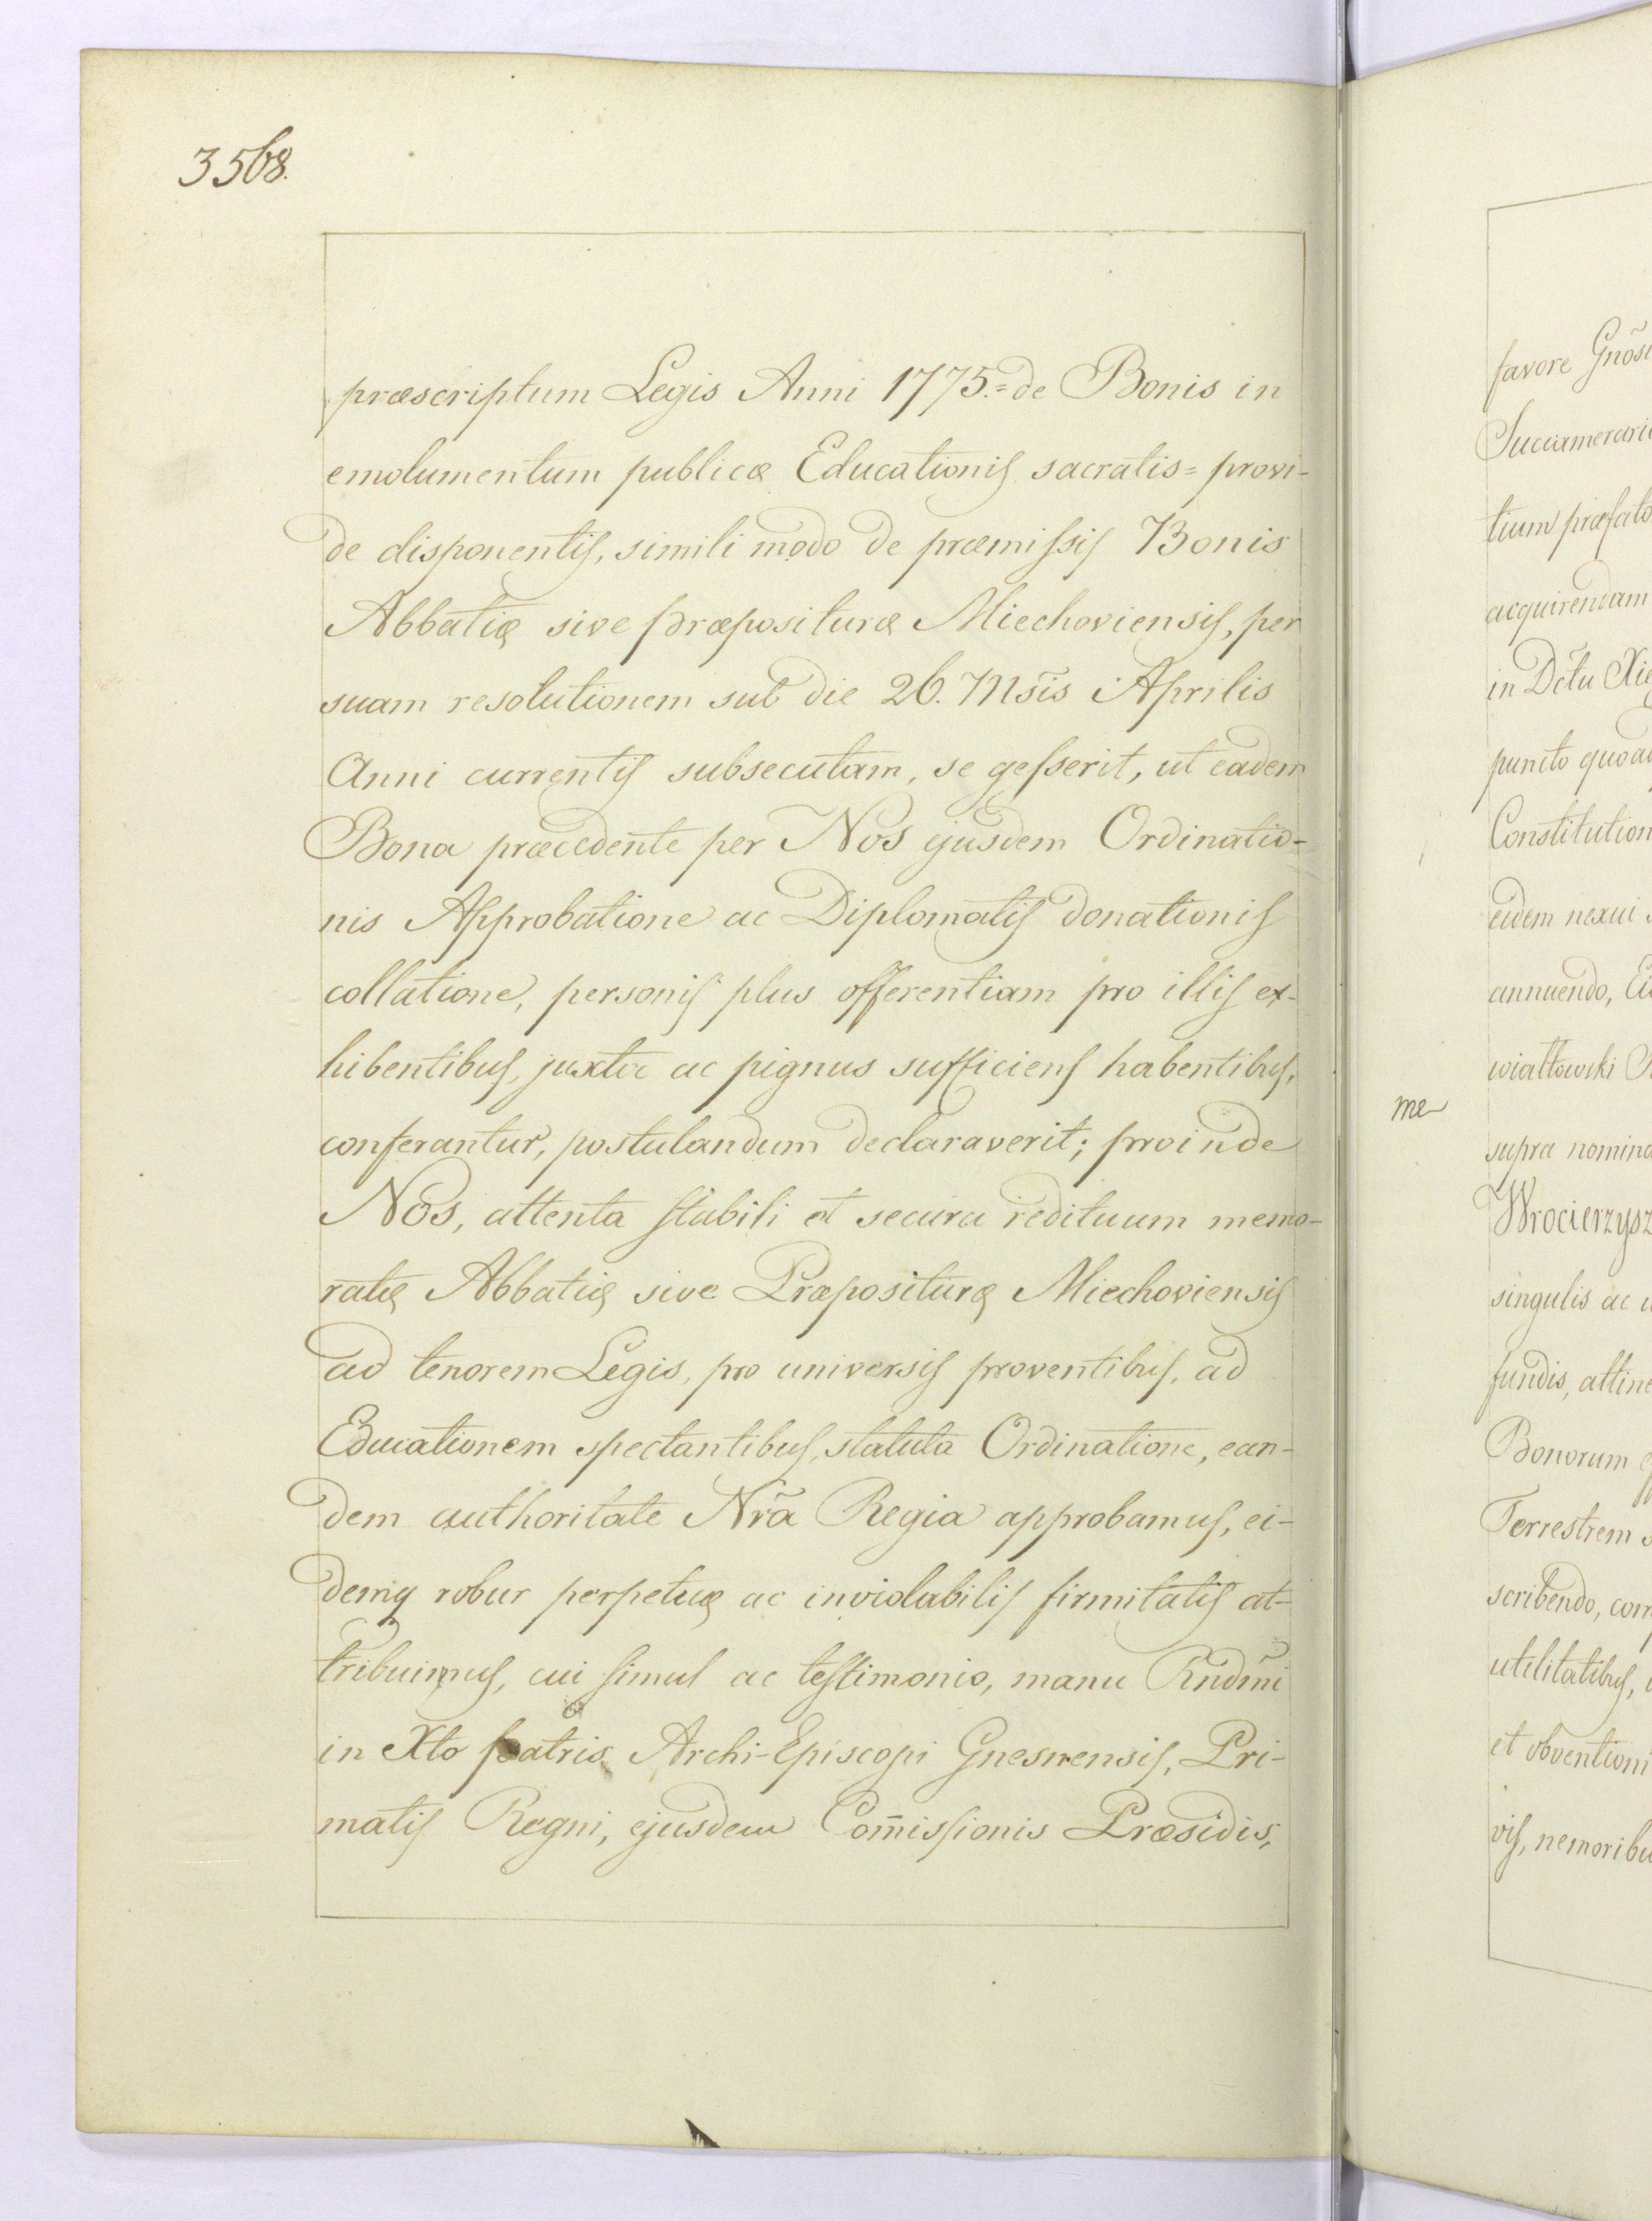 3568.
præscriptum Legis Anni 1775.= de Bonis in
emolumentum publicæ Educationis sacratis= provi-
de disponentis, simili modo de præmissis Bonis
Abbatiæ sive præposituræ Miechoviensis, per
suam resolutionem sub die 26. Ms̃is Aprilis
Anni currentis subsecutam, se gesserit, ut eadem
Bona præcedente per Nos ejusdem Ordinatio-
nis Approbatione ac Diplomatis donationis
collatione, personis plus offerentiam pro illis ex-
hibentibus, juxta ac pignus sufficiens habentibus,
conferantur, postulandum declaraverit; proinde
Nos, attenta stabili et secura redituum memo-
ratæ Abbatiæ sive Præposituræ Miechoviensis
ad tenorem Legis, pro universis proventibus, ad
Educationem spectantibus, statuta Ordinatione, ean-
dem authoritate Nr̃a Regia approbamus, ei-
demq robur perpetuæ ac inviolabilis firmitatis at-
tribuimus, cui simul ac testimonio, manu Rndm̃i
in Xto patris Archi-Episcopi Gnesnensis, Pri-
matis Regni, ejusdem Com̃issionis Præsidis,
favore
tium præfato
acquirendam
in Dc̃tu
puncto quoad
Constitution
eidem nexui
annuendo,
wiatłowski
me
supra nomina
Wrocierzysz
singulis ac
fundis, attine
Bonorum
Terrestrem
scribendo,
utilitatibus,
et obventioni
vis, nemoribu